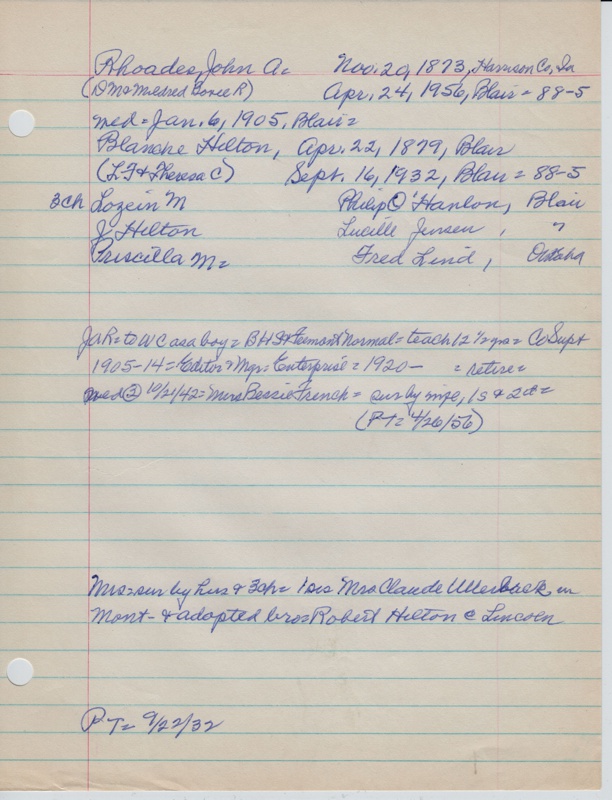 Rhoades, John A. Nov. 20, 1873, Harrison Co, Ia
(D M & Mildred R) Apr. 24, 1956, Blair = 88-5
med = Jan. 6, 1905, Blair =
Blanche Hilton, Apr. 22, 1879, Blair
(L.F & Theresa C) Sept. 16, 1932, Blair = 88-5
3ch Lozein M Philip O'Hanlon, Blair
J. Hilton Lucille Jensen, "
Priscilla M = Fred Lind, Omaha
JaR = to WC as a boy = BHS & Fremont Normal = teach 12 ½ yrs = Co Supt
1905-14 = Editor & Mgr = Enterprise = 1920- = retire =
med ② 10/21/42 = Mrs Bessie French = sur by wife, 1s & 2d =
(PT = 4/26/56)
Mrs = sur by hus & 3ch = 1 sis Mrs Claude Utterback in
Mont - & adopted bros Robert Hilton @ Lincoln
PT = 9/22/32